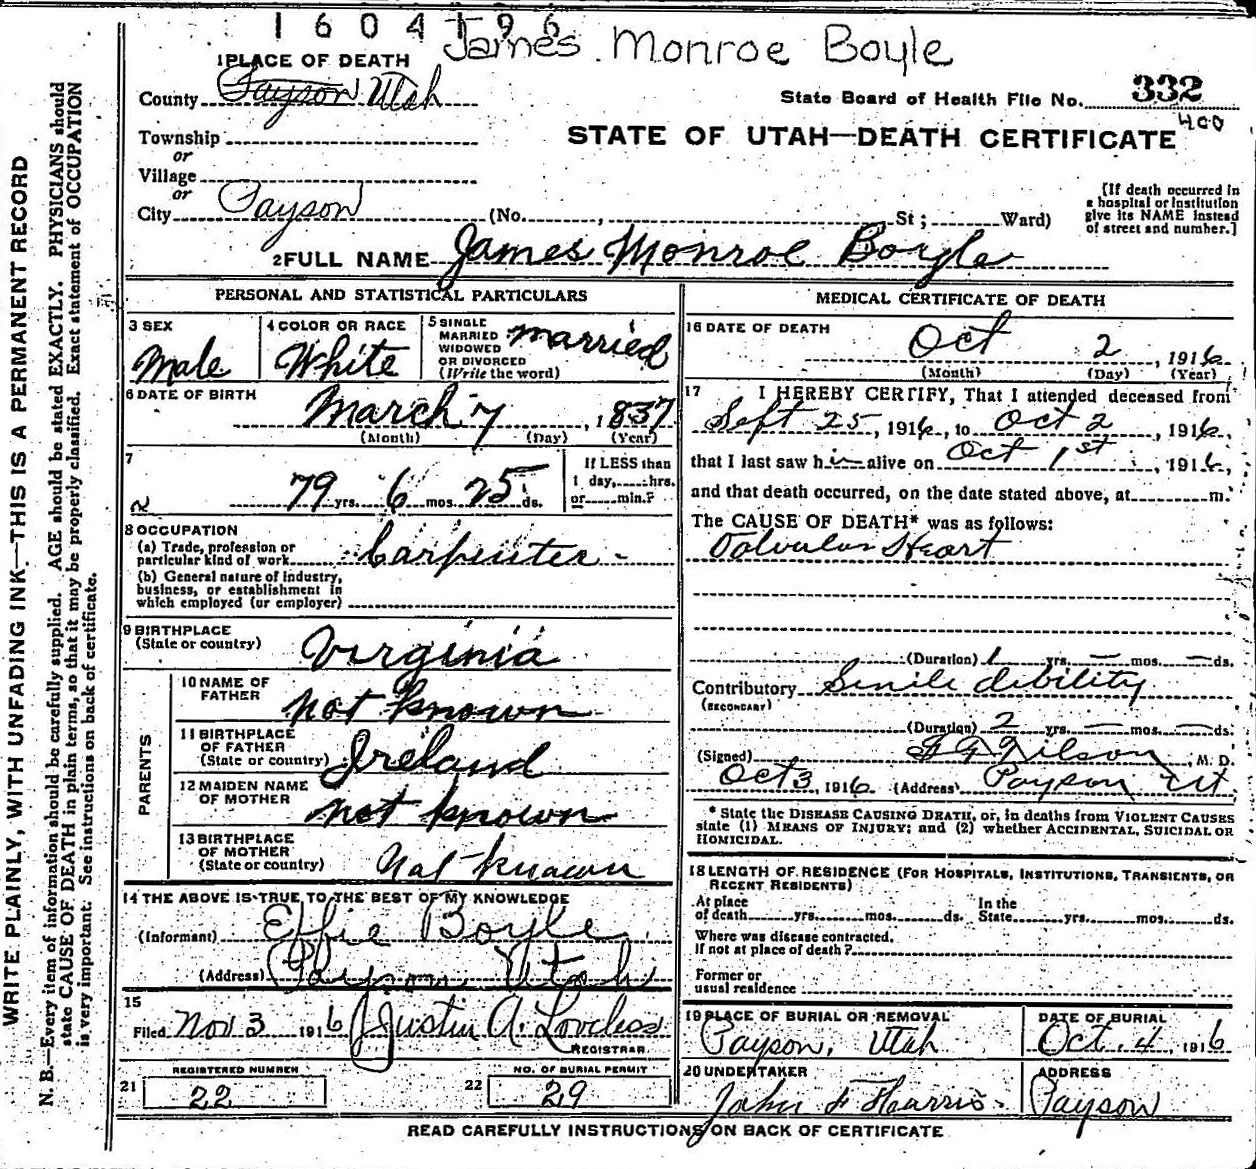 1604196
James Monroe Boyle
1 PLACE OF DEATH
County Payson Utah
State Board of Health File No. 332
400
STATE OF UTAH—DEATH CERTIFICATE
Township
or
Village
or
City Payson (No. , St; Ward)
[If death occurred in
a hospital or institution
give its NAME instead
of street and number.]
2 FULL NAME James Monroe Boyle
PERSONAL AND STATISTICAL PARTICULARS
3 SEX
Male
4 COLOR OR RACE
White
5 SINGLE
MARRIED
WIDOWED
OR DIVORCED
(Write the word)
married
6 DATE OF BIRTH
March 7, 1837
(Month) (Day) (Year)
7
79 yrs. 6 mos. 25 ds.
If LESS than
1 day, hrs.
or min.?
8 OCCUPATION
(a) Trade, profession or
particular kind of work Carpenter -
(b) General nature of industry,
business, or establishment in
which employed (or employer)
9 BIRTHPLACE
(State or country) Virginia
PARENTS
10 NAME OF
FATHER not known
11 BIRTHPLACE
OF FATHER
(State or country) Ireland
12 MAIDEN NAME
OF MOTHER not known
13 BIRTHPLACE
OF MOTHER
(State or country) Not known
14 THE ABOVE IS TRUE TO THE BEST OF MY KNOWLEDGE
(Informant) Effie Boyle
(Address) Payson Utah
15
Filed Nov 3 1916 Justin A. Loveless
REGISTRAR
REGISTERED NUMBER
21 22
NO. OF BURIAL PERMIT
22 29
MEDICAL CERTIFICATE OF DEATH
16 DATE OF DEATH
Oct 2, 1916
(Month) (Day) (Year)
17 I HEREBY CERTIFY, That I attended deceased from
Sept 25, 1916, to Oct 2, 1916,
that I last saw him alive on Oct 1st, 1916,
and that death occurred, on the date stated above, at m.
The CAUSE OF DEATH* was as follows:
Valvular Heart
(Duration) 1 yrs. — mos. — ds.
Contributory Senile debility
(SECONDARY)
(Duration) 2 yrs. — mos. — ds.
(Signed) , M. D.
Oct 3, 1916. (Address) Payson Ut
* State the DISEASE CAUSING DEATH, or, in deaths from VIOLENT CAUSES
state (1) MEANS OF INJURY; and (2) whether ACCIDENTAL, SUICIDAL OR
HOMICIDAL.
18 LENGTH OF RESIDENCE (FOR HOSPITALS, INSTITUTIONS, TRANSIENTS, OR
RECENT RESIDENTS)
At place
of death yrs. mos. ds.
In the
State yrs. mos. ds.
Where was disease contracted,
If not at place of death?
Former or
usual residence
19 PLACE OF BURIAL OR REMOVAL
Payson, Utah
DATE OF BURIAL
Oct. 4, 1916
20 UNDERTAKER
John F Harris.
ADDRESS
Payson
READ CAREFULLY INSTRUCTIONS ON BACK OF CERTIFICATE
WRITE PLAINLY, WITH UNFADING INK—THIS IS A PERMANENT RECORD
N. B.—Every item of information should be carefully supplied. AGE should be stated EXACTLY. PHYSICIANS should
state CAUSE OF DEATH in plain terms, so that it may be properly classified. Exact statement of OCCUPATION
is very important. See instructions on back of certificate.